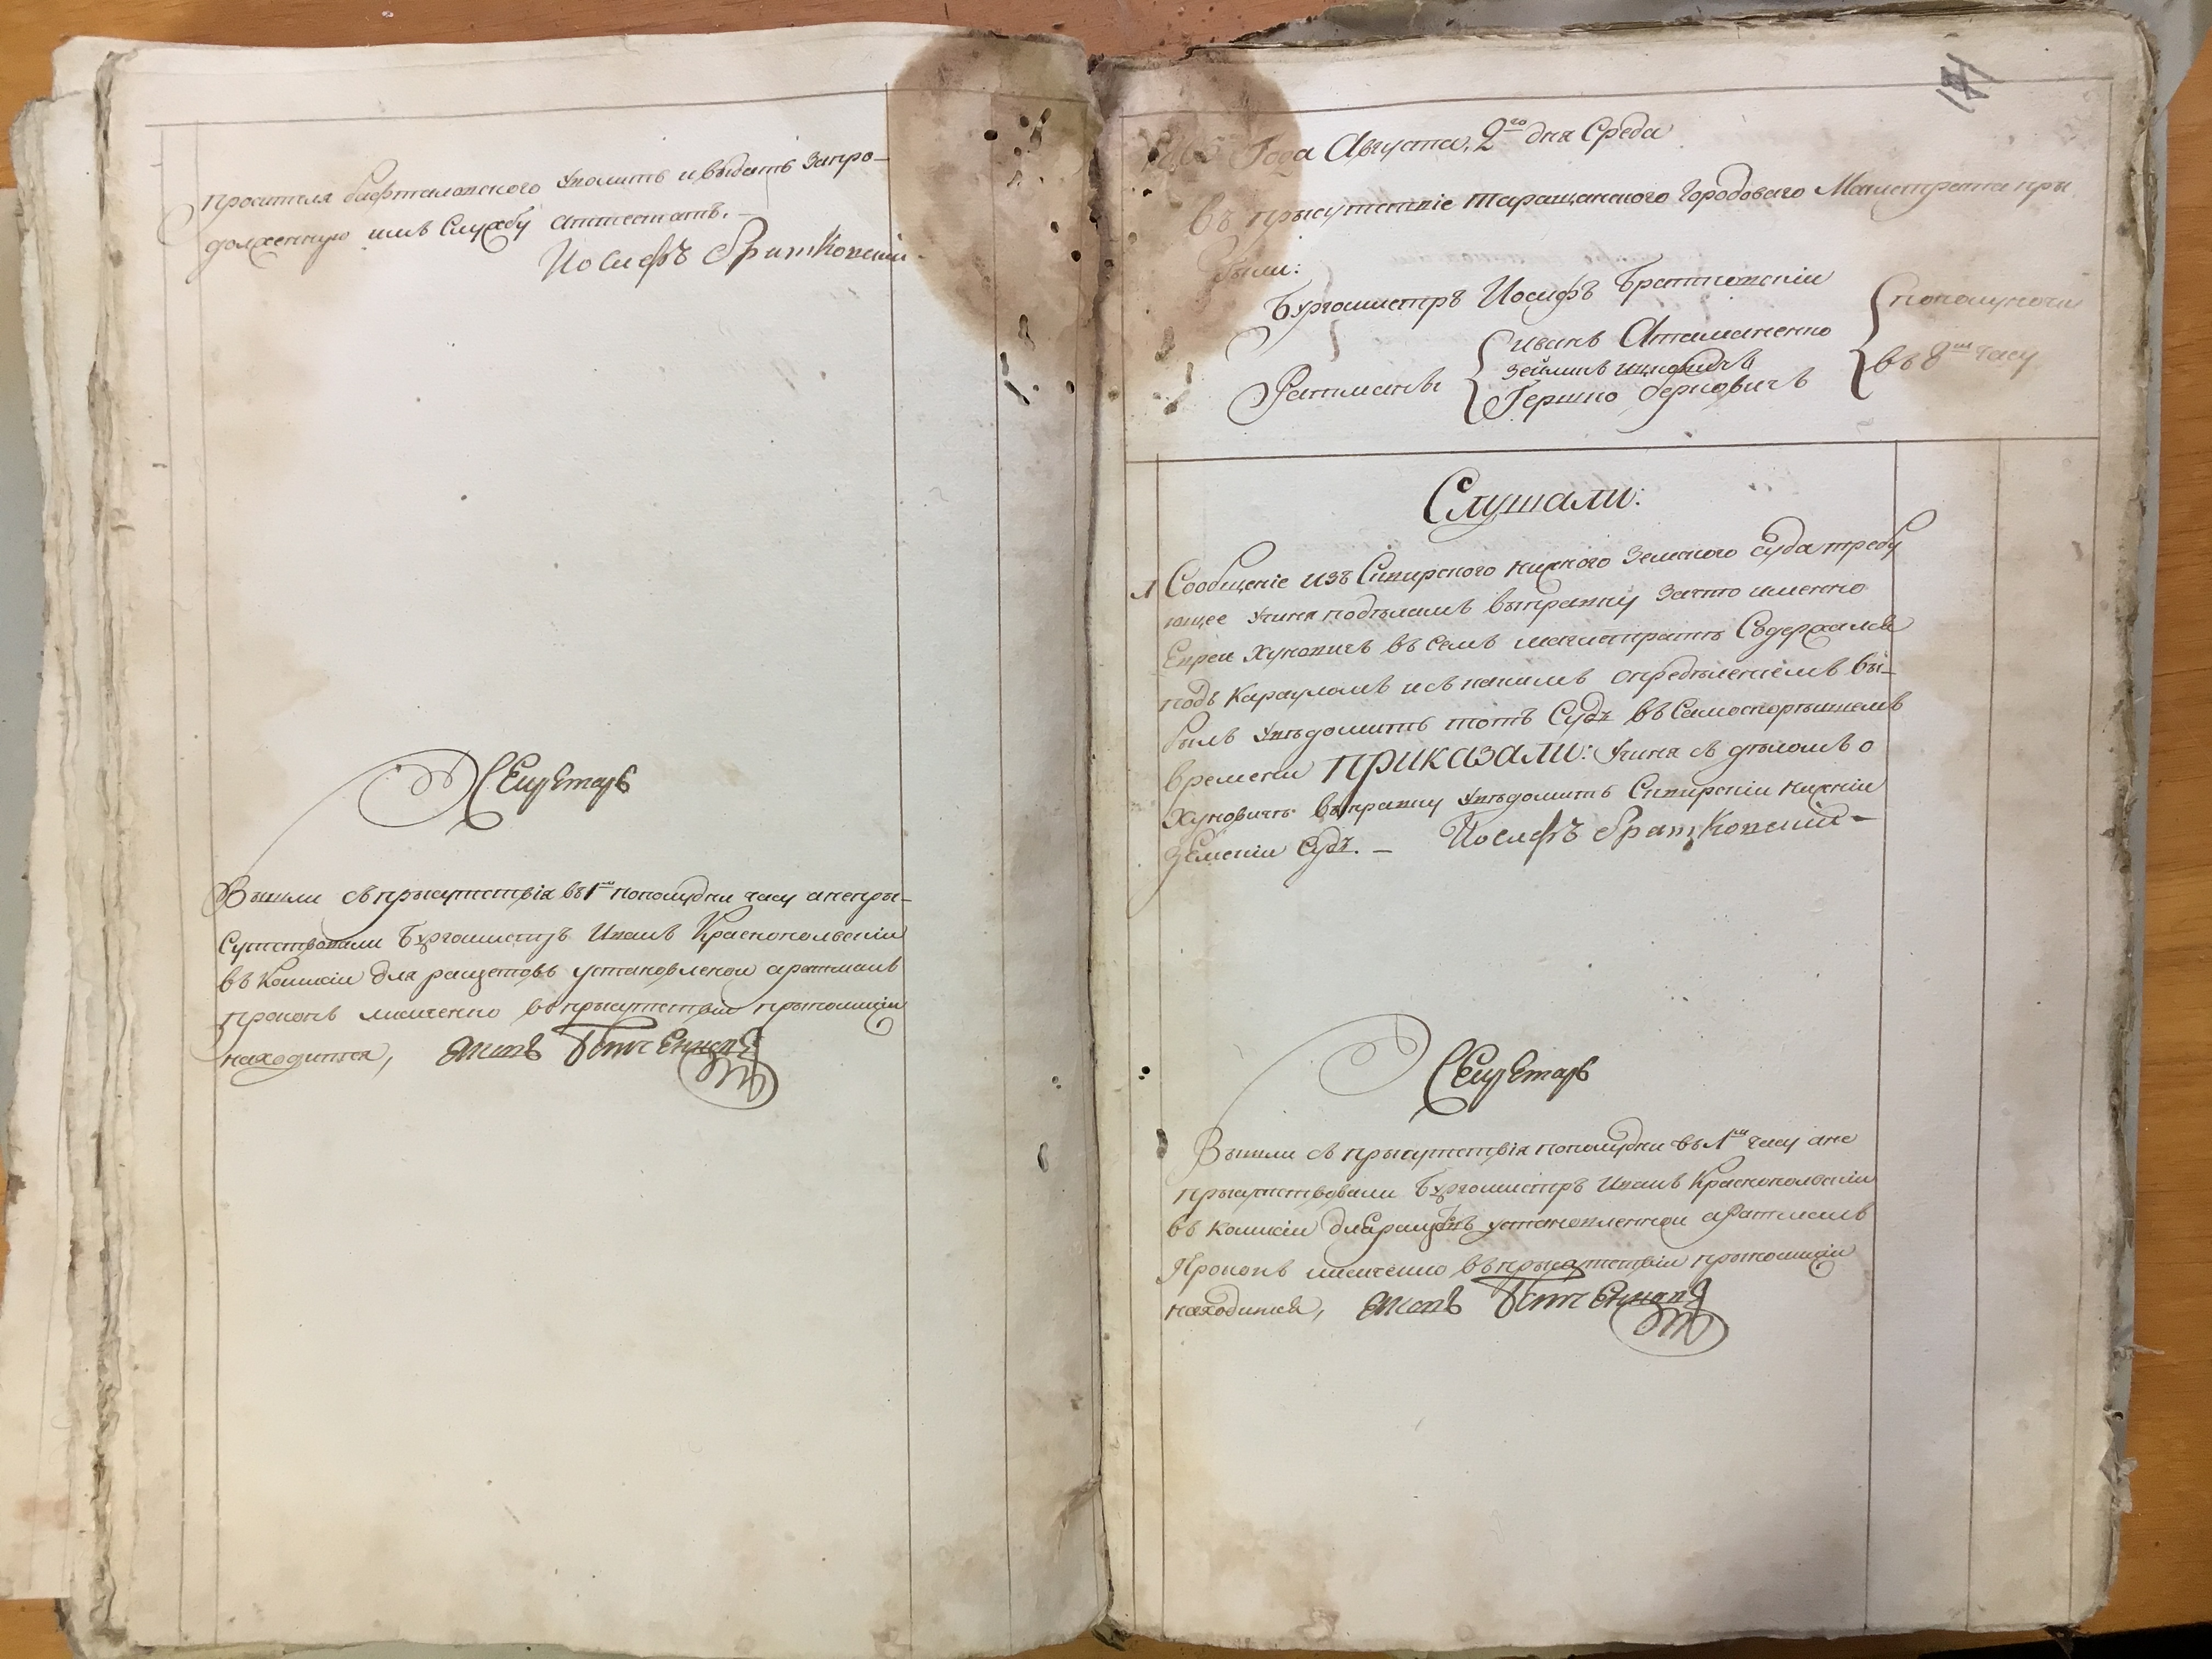 просителя Бафталовского уволить и выдать запро-
долженную имъ Службу аттестатъ. —
Иосифъ Братковский
Секретарь
Вышли съ присутствія въ 1м пополудни часу а непры-
сутствовали Бургомистръ Иванъ Краснопольскій
въ Комисіи для разщетовъ установленой а ратманъ
находится,
1805 Года Августа, 2го дня Среда
Въ прысутствіе Таращанского Городоваго Магистрата пры
были:
Бургомистръ Иосифъ Братковскій
Ратманы
Иванъ Атаманенко
Гершко Берковичъ
пополуночи
въ 8м часу
Слушали:
1 Сообщеніе изъ Сквирского нижного Земского Суда требу
ющее учиня подѣламъ выправку зачто именно
Еврей Хунович въ семъ магистратѣ Содержался
подъ Карауломъ и съ какимъ опредѣленіемъ вы-
былъ увѣдомить тотъ Судъ въ Самоскорѣйшемъ
времени ПРИКАЗАЛИ: Учиня съ дѣломъ о
Хуновичѣ выправку увѣдомить Сквирскій нижній
Земскій Судъ. — Иосифъ Братковский —
Секретарь
Вышли съ прысутствія пополудни въ 1м часу а не
прысутствовали Бургомистръ Иванъ Краснопольскій
въ Комисіи для разщетовъ установленной а Ратманъ
находится,